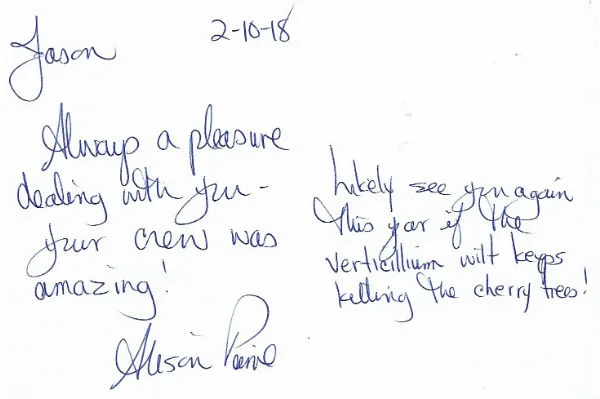 Jason
2-10-18
Always a pleasure
dealing with you -
your crew was
amazing!
Alison
Likely see you again
this year if the
verticillium wilt keeps
killing the cherry trees!